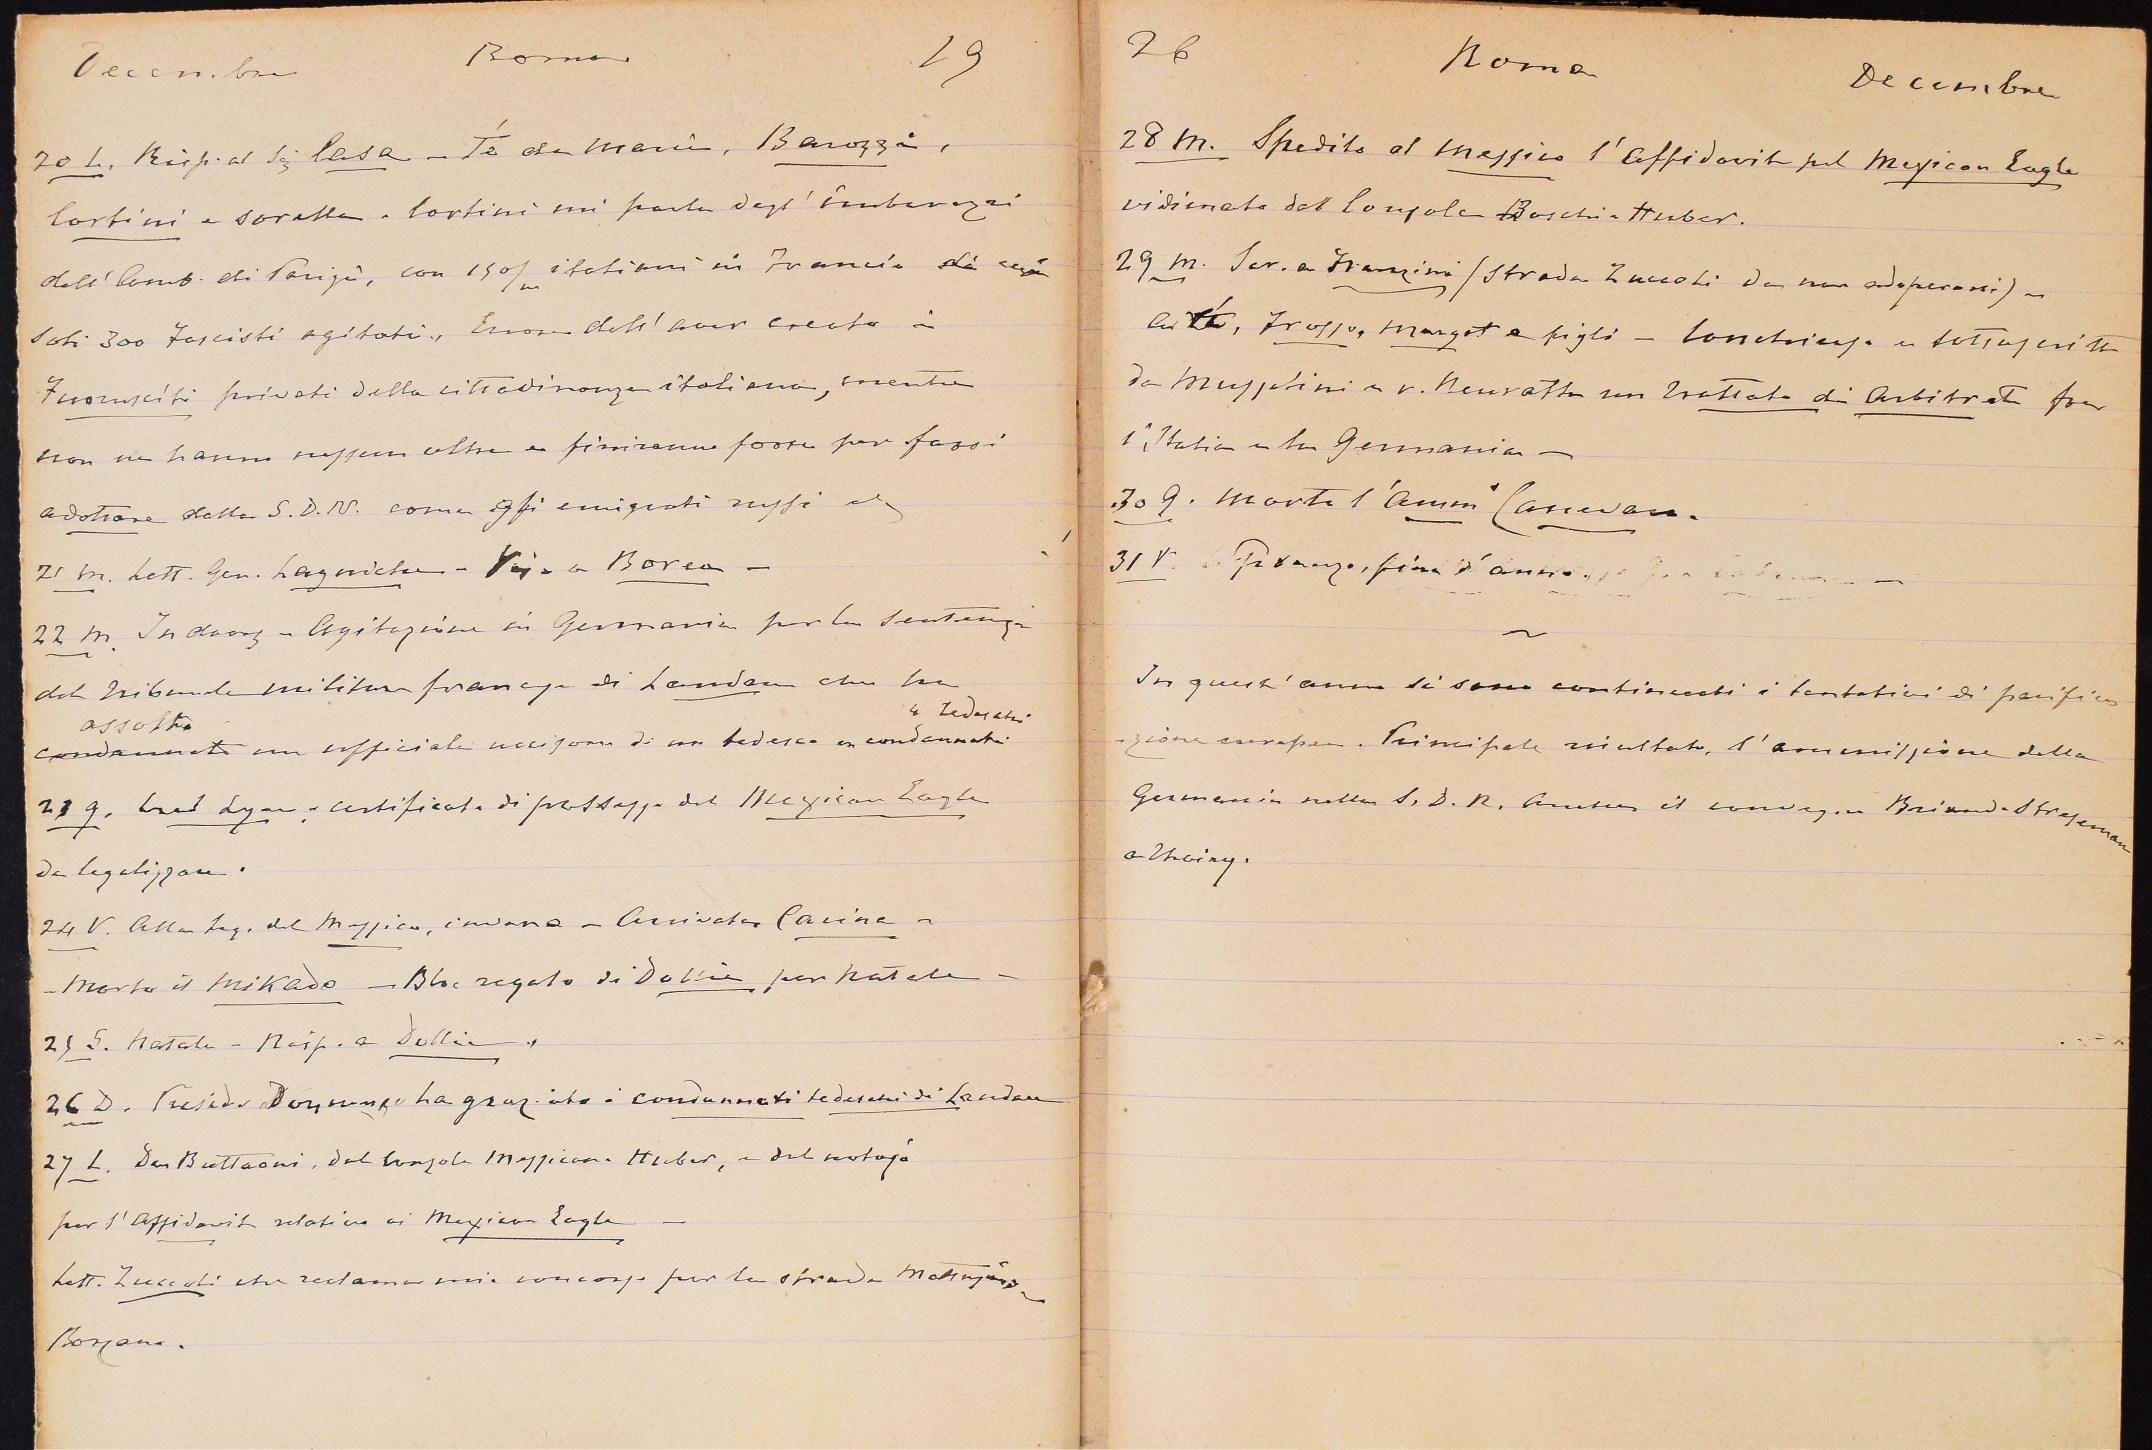 Decembre Roma 19
20 L. Risp. al Sig Casa - Té da Marie, Barozzi,
Cortini e sorella. Cortini mi parla degl' imbarazzi
dell' Amb. di Parigi, con italiani in Francia di cui
soli 300 Fascisti agitati. Errore dell' aver creato i
Fuorusciti privati della cittadinanza italiana, mentre
non ne hanno nessun altra e finiranno forse per farsi
adottare dalla S.D.N. come gli emigrati russi
21 M. Lett. Gen. - Vis. a Borea -
22 M. - Agitazione in Germania per la sentenza
del Tribunale militare francese di Landau che ha
assolto 4 tedeschi
condannato un ufficiale uccisore di un tedesco e condannati
23 g. Cred Lyon. certificato di possesso del Mexican Eagle
da legalizzare.
24 V. Alla Leg. del Messico, invano - Arrivata Cacina -
- Morto il Mikado - Bloc regalo di Dollie per Natale -
25 S. Natale - Risp. a Dollie.
26 D. Presid. Doumergue ha graziato i condannati tedeschi di Landau
27 L. Da Buttaoni, dal Console Messicano Huber, e dal notajo
per l' Affidavit relativo ai Mexican Eagle -
Lett. Zuccoli che reclama mio concorso per la strada
26 Roma Decembre
28 M. Spedito al Messico l' Affidavit pel Mexican Eagle
vidimato dal Console Boschi-Huber.
29 M. Scr. a Franzini (Strada Zuccoli da non adoperarsi) -
Frasso, Margot e figli - Conchiuso e sottoscritto
da Mussolini e v. Neurath un Trattato di Arbitrato fra
l' Italia e la Germania -
30 g. Morto l' Amm Canevaro.
31 V. Pranzo, fine d' anno. -
In quest' anno si sono continuati i tentativi di pacifica
-zione europea. Principale risultato, l' ammissione della
Germania nella S.D.N. Anche il convegno Briand-Streseman
a Thoiry.